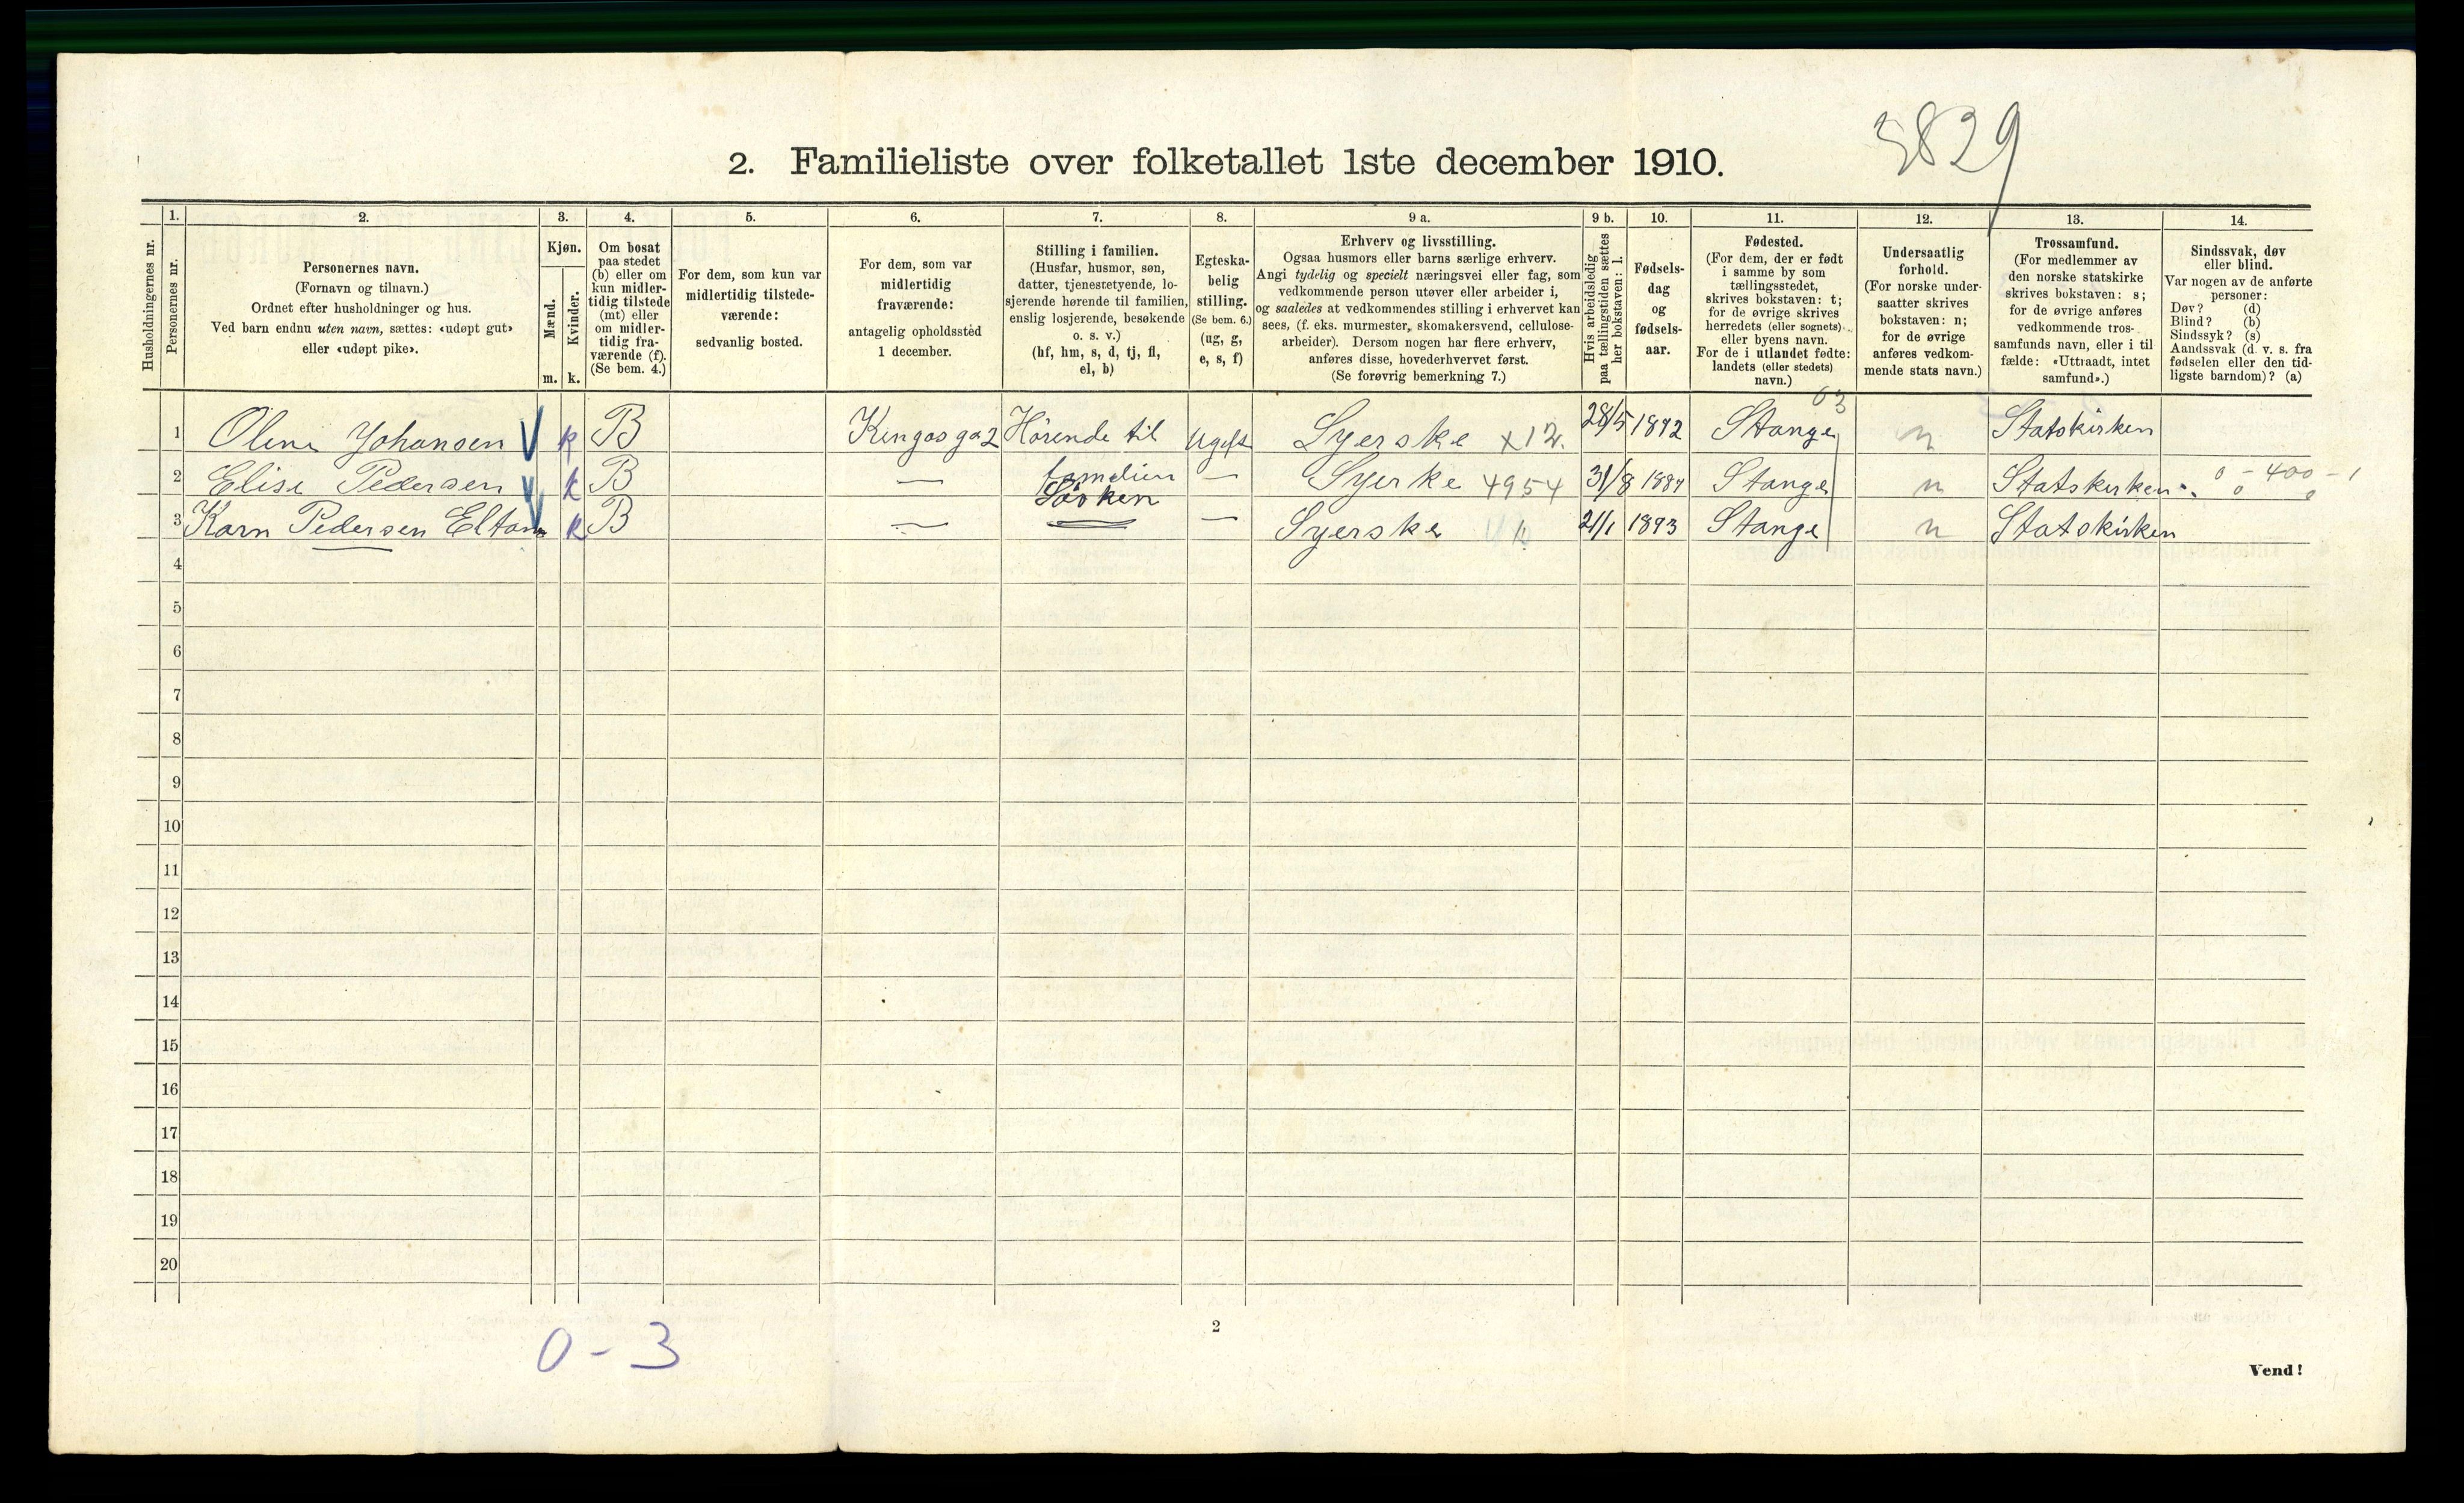 3829
2. Familieliste over folketallet 1ste december 1910.
Husholdningernes nr.
1.
Personernes nr.
2.
Personernes navn.
(Fornavn og tilnavn.)
Ordnet efter husholdninger og hus.
Ved barn endnu uten navn, sættes: «udøpt gut»
eller «udøpt pike».
3.
Kjøn.
Mænd.
m.
Kvinder.
k.
4.
Om bosat
paa stedet
(b) eller om
kun midler-
tidig tilstede
(mt) eller
om midler-
tidig fra-
værende (f).
(Se bem. 4.)
5.
For dem, som kun var
midlertidig tilstede-
værende:
sedvanlig bosted.
6.
For dem, som var
midlertidig
fraværende:
antagelig opholdssted
1 december.
7.
Stilling i familien.
(Husfar, husmor, søn,
datter, tjenestetyende, lo-
sjerende hørende til familien,
enslig losjerende, besøkende
o. s. v.)
(hf, hm, s, d, tj, fl,
el, b)
8.
Egteska-
belig
stilling.
(Se bem. 6.)
(ug, g,
e, s, f)
9 a.
Erhverv og livsstilling.
Ogsaa husmors eller barns særlige erhverv.
Angi tydelig og specielt næringsvei eller fag, som
vedkommende person utøver eller arbeider i,
og saaledes at vedkommendes stilling i erhvervet kan
sees, (f. eks. murmester, skomakersvend, cellulose-
arbeider). Dersom nogen har flere erhverv,
anføres disse, hovederhvervet først.
(Se forøvrig bemerkning 7.)
9 b.
Hvis arbeidsledig
paa tællingstiden sættes
her bokstaven: l.
10.
Fødsels-
dag
og
fødsels-
aar.
11.
Fødested.
(For dem, der er født
i samme by som
tællingsstedet,
skrives bokstaven: t;
for de øvrige skrives
herredets (eller sognets)
eller byens navn.
For de i utlandet fødte:
landets (eller stedets)
navn.)
12.
Undersaatlig
forhold.
(For norske under-
saatter skrives
bokstaven: n;
for de øvrige
anføres vedkom-
mende stats navn.)
13.
Trossamfund.
(For medlemmer av
den norske statskirke
skrives bokstaven: s;
for de øvrige anføres
vedkommende tros-
samfunds navn, eller i til
fælde: «Uttraadt, intet
samfund».)
14.
Sindssvak, døv
eller blind.
Var nogen av de anførte
personer:
Døv? (d)
Blind? (b)
Sindssyk? (s)
Aandssvak (d. v. s. fra
fødselen eller den tid-
ligste barndom)? (a)
63
1 Oline Johansen k B Hørende til Ugift Syerske x12. 28/5 1892 Stange n Statskirken
familien
2 Elise Pedersen k B — — Syerke 4954 31/8 Stange n Statskirken 0 - 400 - 1
3 Karn Pedersen k B — — Syerske 21/1 1893 Stange n Statskirken
4
5
6
7
8
9
10
11
12
13
14
15
16
17
18
19
20
0 - 3
2
Vend!